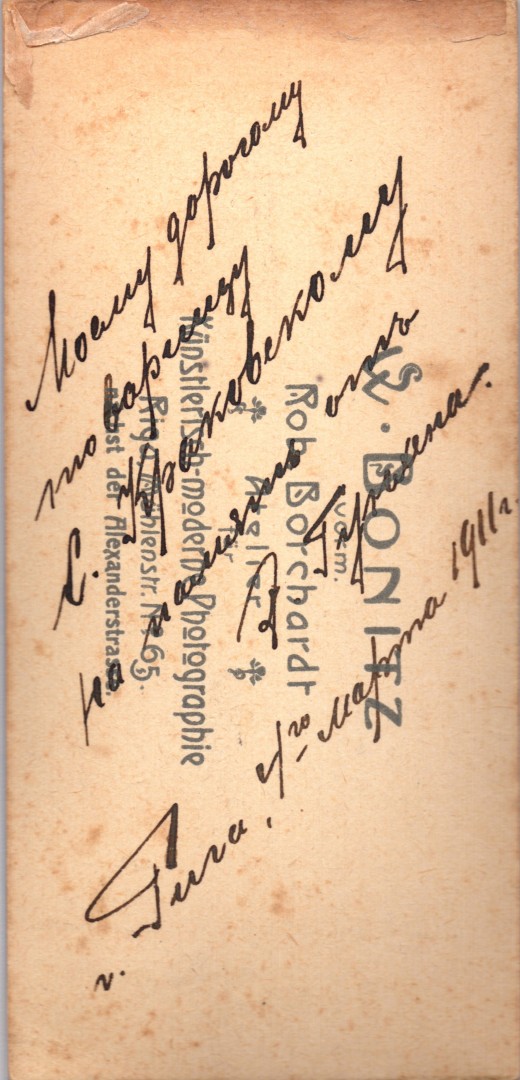 Моему дорогому
товарищу
С. Краковскому
на память отъ
Гиршена.
г. Рига, 1го марта 1911 г.
BONITZ
vorm.
Rob. Borchardt
Atelier
für
Künstlerisch-moderne Photographie
Riga, Mühlenstr. No 65.
nächst der Alexanderstrasse.